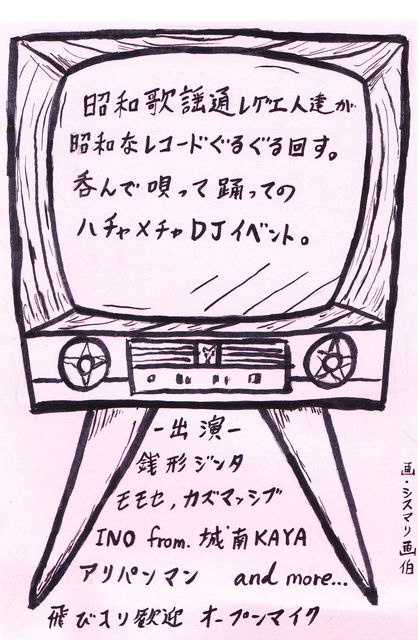 昭和歌謡通レゲエ人達が
昭和なレコードぐるぐる回す。
呑んで唄って踊っての
ハチャメチャDJイベント。
-出演-
銭形ジンタ
モモセ,カズマッシブ
INO from.城南KAYA
アリパンマン and more...
飛び入り歓迎 オープンマイク
画・シスマリ画伯